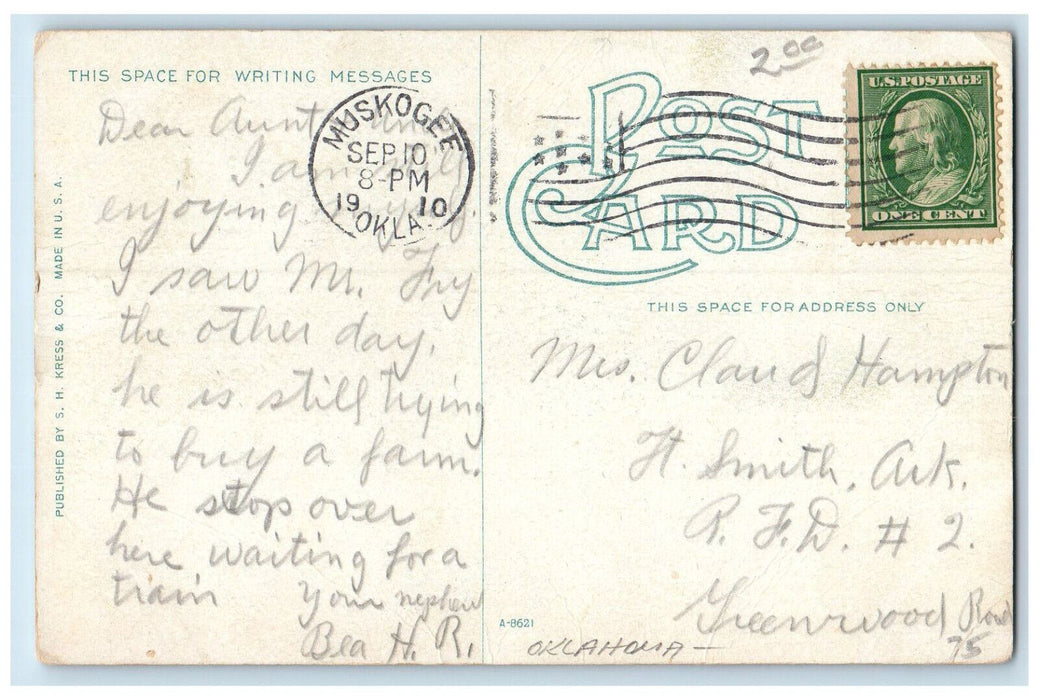 THIS SPACE FOR WRITING MESSAGES
Dear Aunt
I am
enjoying
I saw Mr. Fry
the other day,
he is still trying
to buy a farm.
He stop over
here waiting for a
train
Your nephew
Bea H. R.
PUBLISHED BY S. H. KRESS & CO. MADE IN U. S. A.
MUSKOGEE
SEP 10
8-PM
1910
OKLA.
2.00
POST
CARD
U.S. POSTAGE
ONE CENT
THIS SPACE FOR ADDRESS ONLY
Mrs. Claud Hampton
Ft. Smith, Ark.
R. F. D. # 2.
Greenwood Road
75
A-8621
OKLAHOMA -